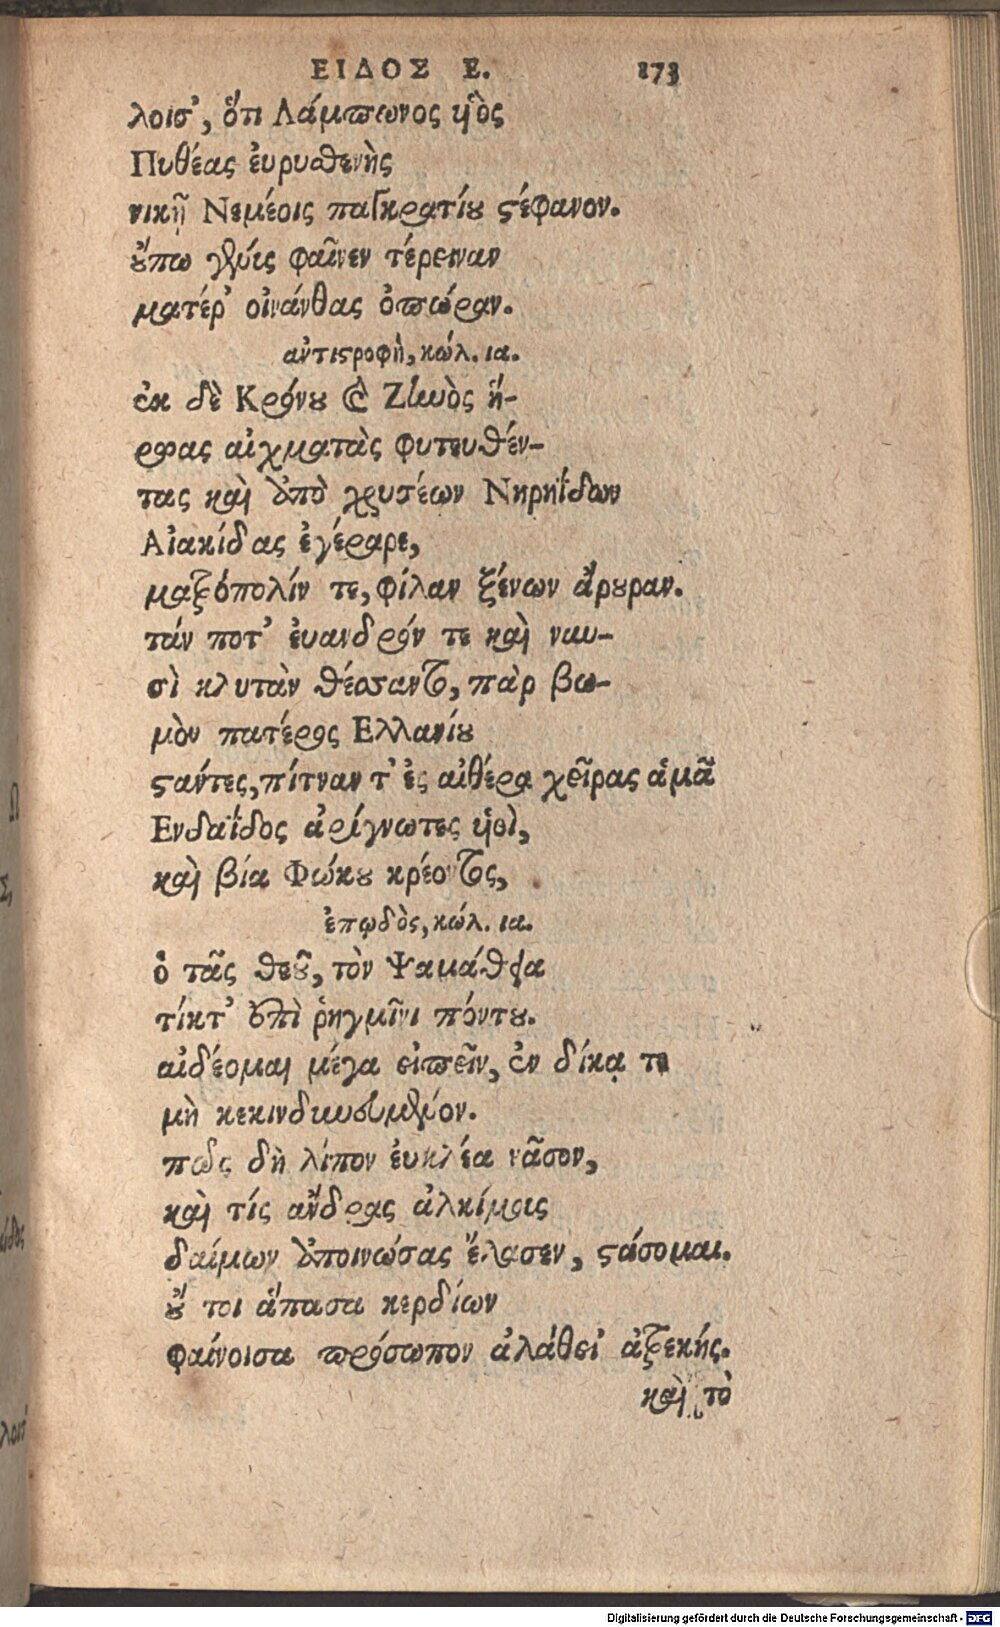 ΕΙΔΟΣ Ε. 273
λοισ’, ὅτι Λάμπωνος ὑὸς
Πυθέας ἐυρυσθενὴς
νικῇ Νεμέοις παγκρατίου στέφανον.
οὔπω γένυις φαῖνεν τέρειναν
ματέρ’ οἰνάνθας ὀπώραν.
αὐτιστροφὴ, κώλ. ια.
ἐκ δὲ Κρόνου καὶ Ζηνὸς ἥ-
ρωας αἰχματὰς φυτευθέν-
τας καὶ ἀπὸ χρυσέων Νηρηΐδων
Αἰακίδας ἐγέραρε,
ματρόπολίν τε, φίλαν ξένων ἄρουραν.
τάν ποτ’ ἐυανδρόν τε καὶ ναυ-
σὶ κλυτὰν θέσσαντο, πὰρ βω-
μὸν πατέρος Ελλανίου
στάντες, πίτναν τ’ ἐς αἰθέρα χεῖρας ἁμᾶ
Ενδαΐδος ἀρίγνωτες ὑοὶ,
καὶ βία Φώκου κρέοντος,
ἐπῳδὸς, κώλ. ια.
ὁ τᾶς θεοῦ, τὸν Ψαμάθεια
τίκτ’ ἐπὶ ῥηγμῖνι πόντου.
αἰδέομαι μέγα εἰπεῖν, ἐν δίκᾳ τε
μὴ κεκινδυνευμένον.
πῶς δὴ λίπον ἐυκλέα νᾶσον,
καὶ τίς ἄνδρας ἀλκίμοις
δαίμων ἀποινώσας ἔλασεν, στάσομαι.
οὔ τοι ἅπασα κερδίων
φαίνοισα πρόσωπον ἀλάθει’ ἀτρεκής.
καὶ τὸ
Digitalisierung gefördert durch die Deutsche Forschungsgemeinschaft - DFG